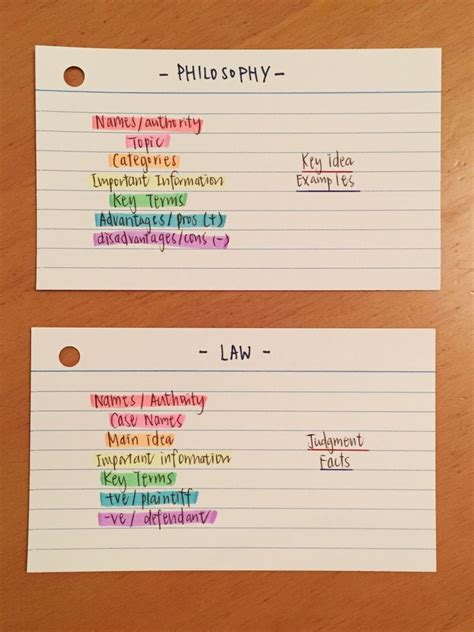 - PHILOSOPHY -
Names/authority
Topic
Categories
Important Information
Key Terms
Advantages/pros (+)
disadvantages/cons (-)
Key idea
Examples
- LAW -
Names/Authority
Case Names
Main idea
Important information
Key Terms
+ve/plaintiff
-ve/defendant
Judgment
Facts